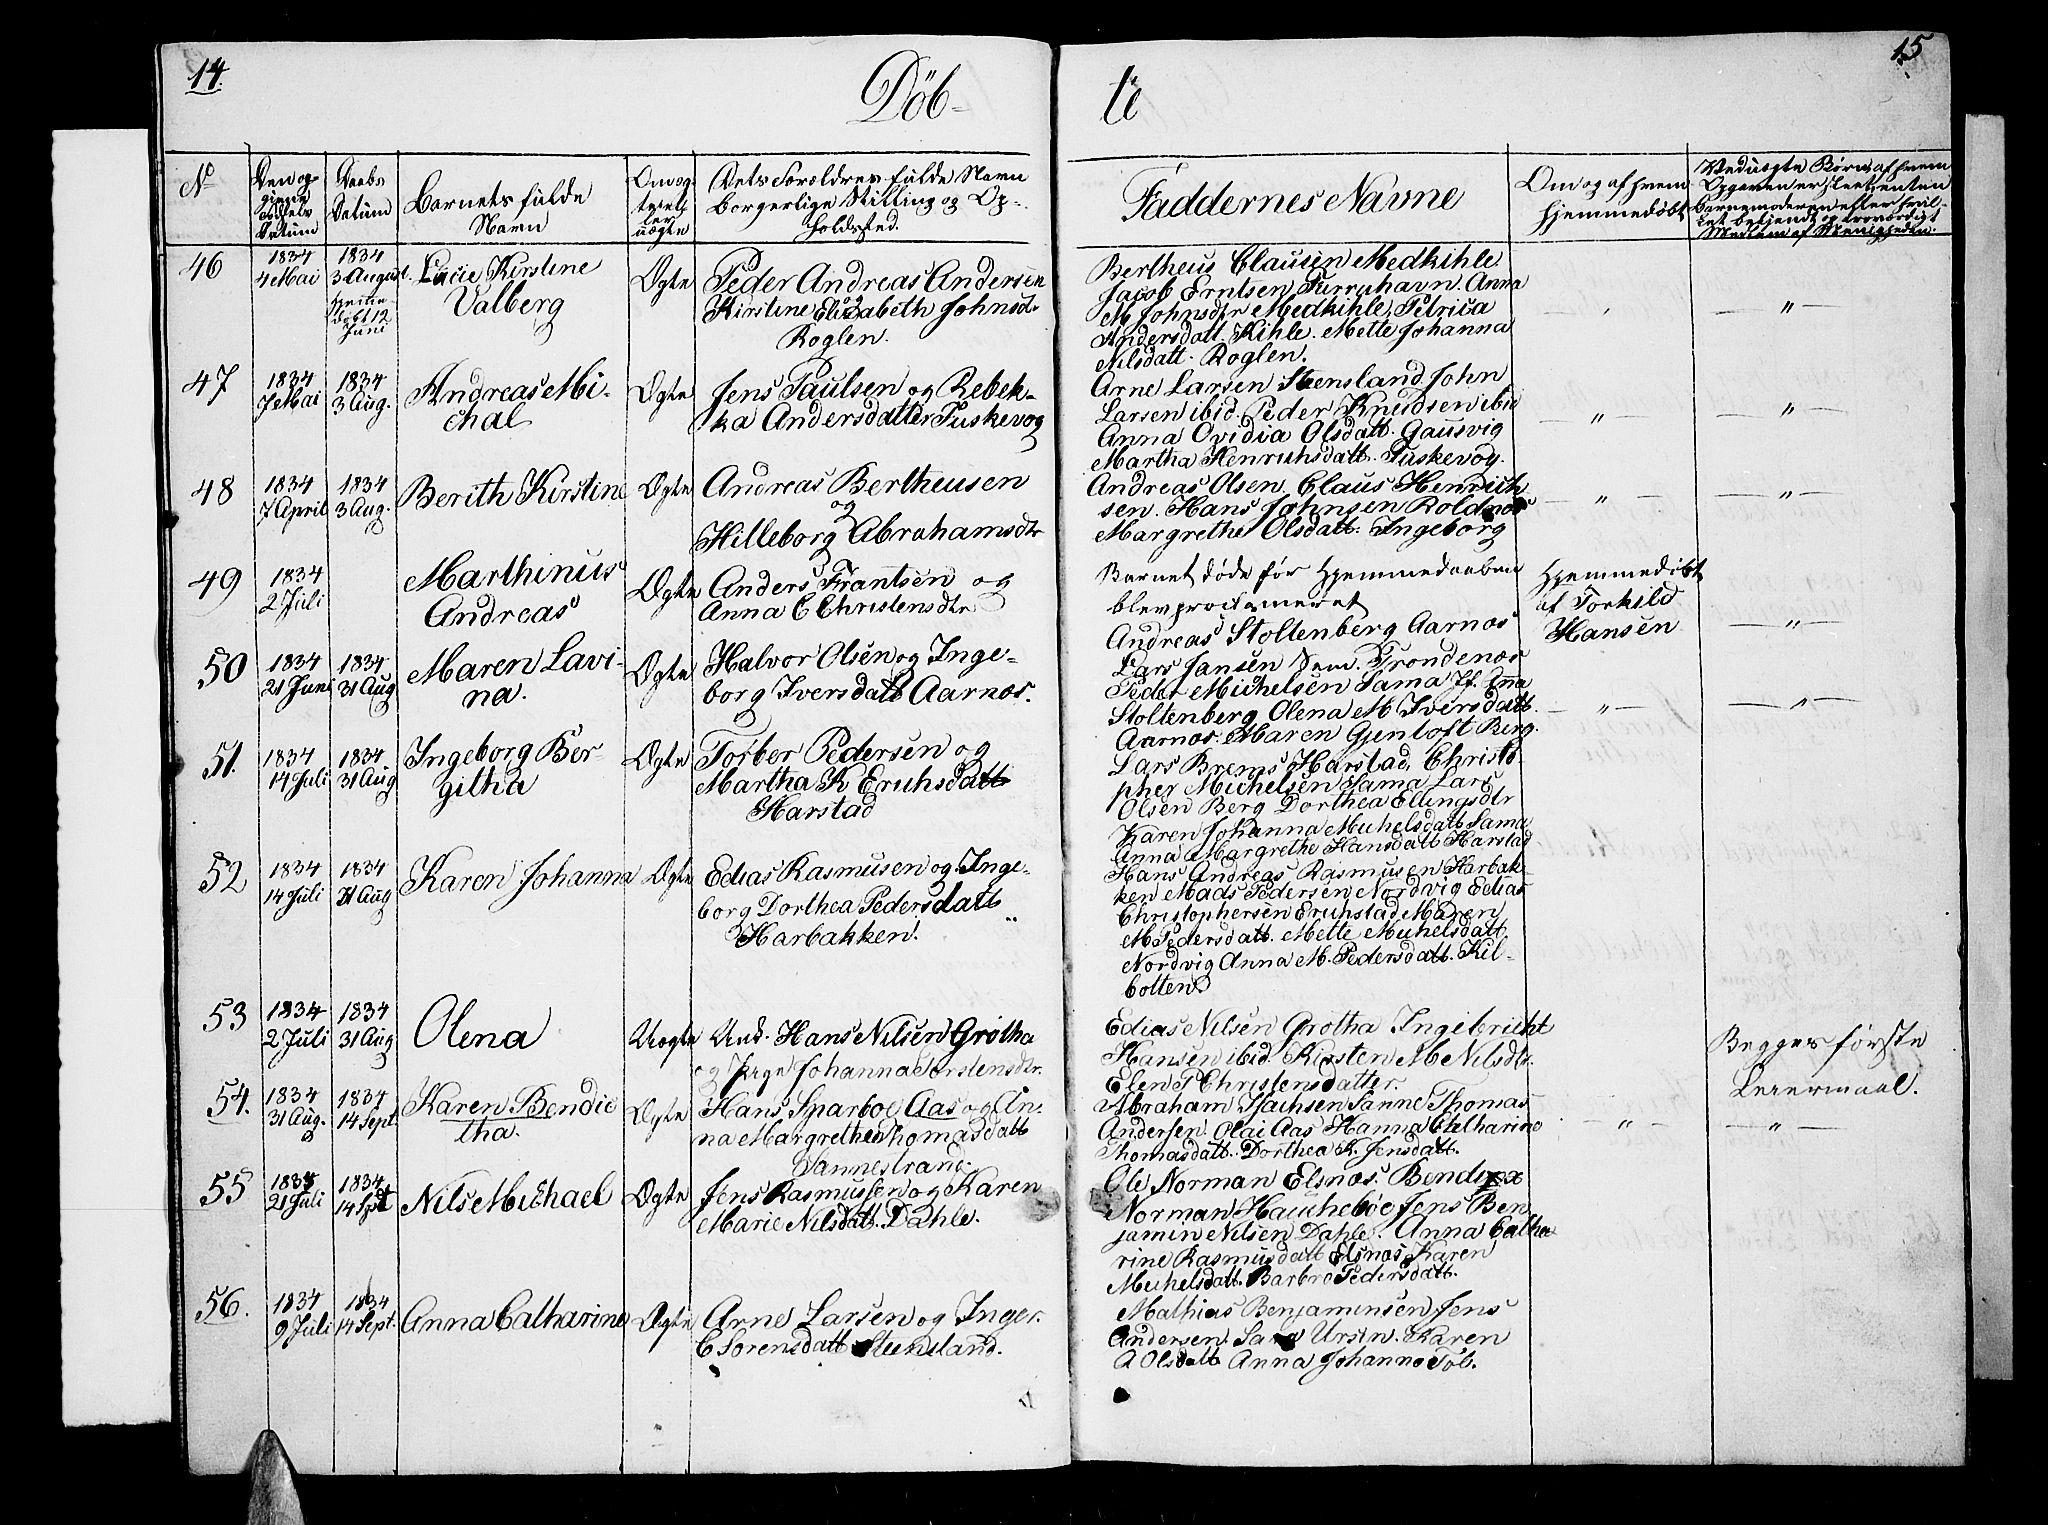 14.
15
Döb-
te
No
Den og-
Daabs
Datum
Barnets fulde
Navn
uægte
Dets Forældres fulde Navn
borgerlige Stilling og Op-
holdsted.
Faddernes Navne
Om og af hvem
hjemmedöbt
Ved uægte Børn af hvem
46
1834
4 Mai
1834
3 August.
döbt 12
Juni
Lucie Kirstine
Valberg
Ægte
Peder Andreas Andersen
og
Kirstine Elizabeth Johnsdr
Roglen.
Bertheus Clausen Medkihle
Jacob Erntsen Furruhavn. Anna
M Johnsdtr Medkihle, Petrica
Andersdatt. Kihle. Mette Johanna
Nilsdatt. Roglen.
— " —
47
1834
7 Mai
1834
3 Aug.
Andreas Mi-
chal
Ægte
Jens Paulsen og Rebek-
ka Andersdatter Fuskevog
Arne Larsen Steensland. John
Larsen ibid. Peder Knudsen ibid
Anna Ovidia Olsdatt. Gausvig
Martha Henrichsdatt. Fuskevog.
— " —
— " —
48
1834
7 April
1834
3 Aug.
Berith Kirstine
Ægte
Andreas Bertheusen
og
Hilleborg Abrahamsdtr
Andreas Olsen. Claus Henrich
sen. Hans Johnsen Roldnæs
Margrethe Olsdatt. Ingeborg
— " —
— " —
49
1834
2 Juli
Marthinus
Andreas
Ægte
Anders Frantsen og
Anna C Christensdtr
Barnet döde för Hjemmedaaben
blev proclameret
Hjemmedöbt
af Torkild
Hansen
— " —
50
1834
21 Juni
1834
31 Aug
Maren Lavi-
na.
Ægte
Halvor Olsen og Inge-
borg Iversdatt Aarnæs.
Andreas Stoltenberg Aarnæs
Lars Jansen Sem. Trondenæs
Peder Michelsen Sama Jf. Anna
Stoltenberg Olena M Iversdatt.
Aarnæs. Maren Gjentoft Berg.
— " —
— " —
51.
1834
14 Juli
1834
31 Aug
Ingeborg Ber-
githa
Ægte
Torber Pedersen og
Martha K Erichsdatt
Harstad
Lars Brems Harstad, Christo-
pher Michelsen Sama Lars
Olsen Berg Dorthea Ellingsdtr
Karen Johanna Michelsdatt Sama
Anna Margrethe Hansdatt Harstad
52
1834
14 Juli
1834
31 Aug
Karen Johanna
Ægte
Edias Rasmusen og Inge-
borg Dorthea Pedersdatt
Harbakken.
Hans Andreas Rasmusen Harbak-
ken Mads Pedersen Nordvig Edias
Christophersen Erichstad Maren
M Pedersdatt. Mette Michelsdatt.
Nordvig Anna M. Pedersdatt. Kil-
botten.
53
1834
2 Juli
1834
31 Aug
Olena
Uægte
Und. Hans Nilsen Grötha
og Pige Johanna Torstensdtr.
Edias Nilsen Grötha Ingebricht
Hansen ibid. Kirsten M Nilsdtr.
Elen P Christensdatter.
Begges förste
Leiermaal.
54.
1834
31 Aug.
1834
14 Sept.
Karen Bendic
tha.
Ægte
Hans Sparboe Aas og An-
na Margrethe Thomasdatt
Sannestrand.
Abraham Isachsen Sanne Thomas
Andersen. Olai Aas Hanna Catharine
Thomasdatt. Dorthea K. Jensdatt.
— " —
— " —
55
1834
21 Juli
1834
14 Spt
Nils Michael
Ægte
Jens Rasmussen og Karen
Marie Nilsdatt. Dahle.
Ole Norman Elsnæs. Bendix
Norman Hauchebøe Jens Ben
jamin Nilsen Dahle. Anna Catha
rine Rasmusdatt Elsnæs Karen
Michelsdatt. Barbro Pedersdatt.
56.
1834
9 Juli
1834
14 Sept.
Anna Catharine
Ægte
Arne Larsen og Inger.
C Sorensdatt Steensland.
Mathias Benjaminsen, Jens
Andersen. Sara Ursin. Karen
A Olsdatt Anna Johanna Tøb.